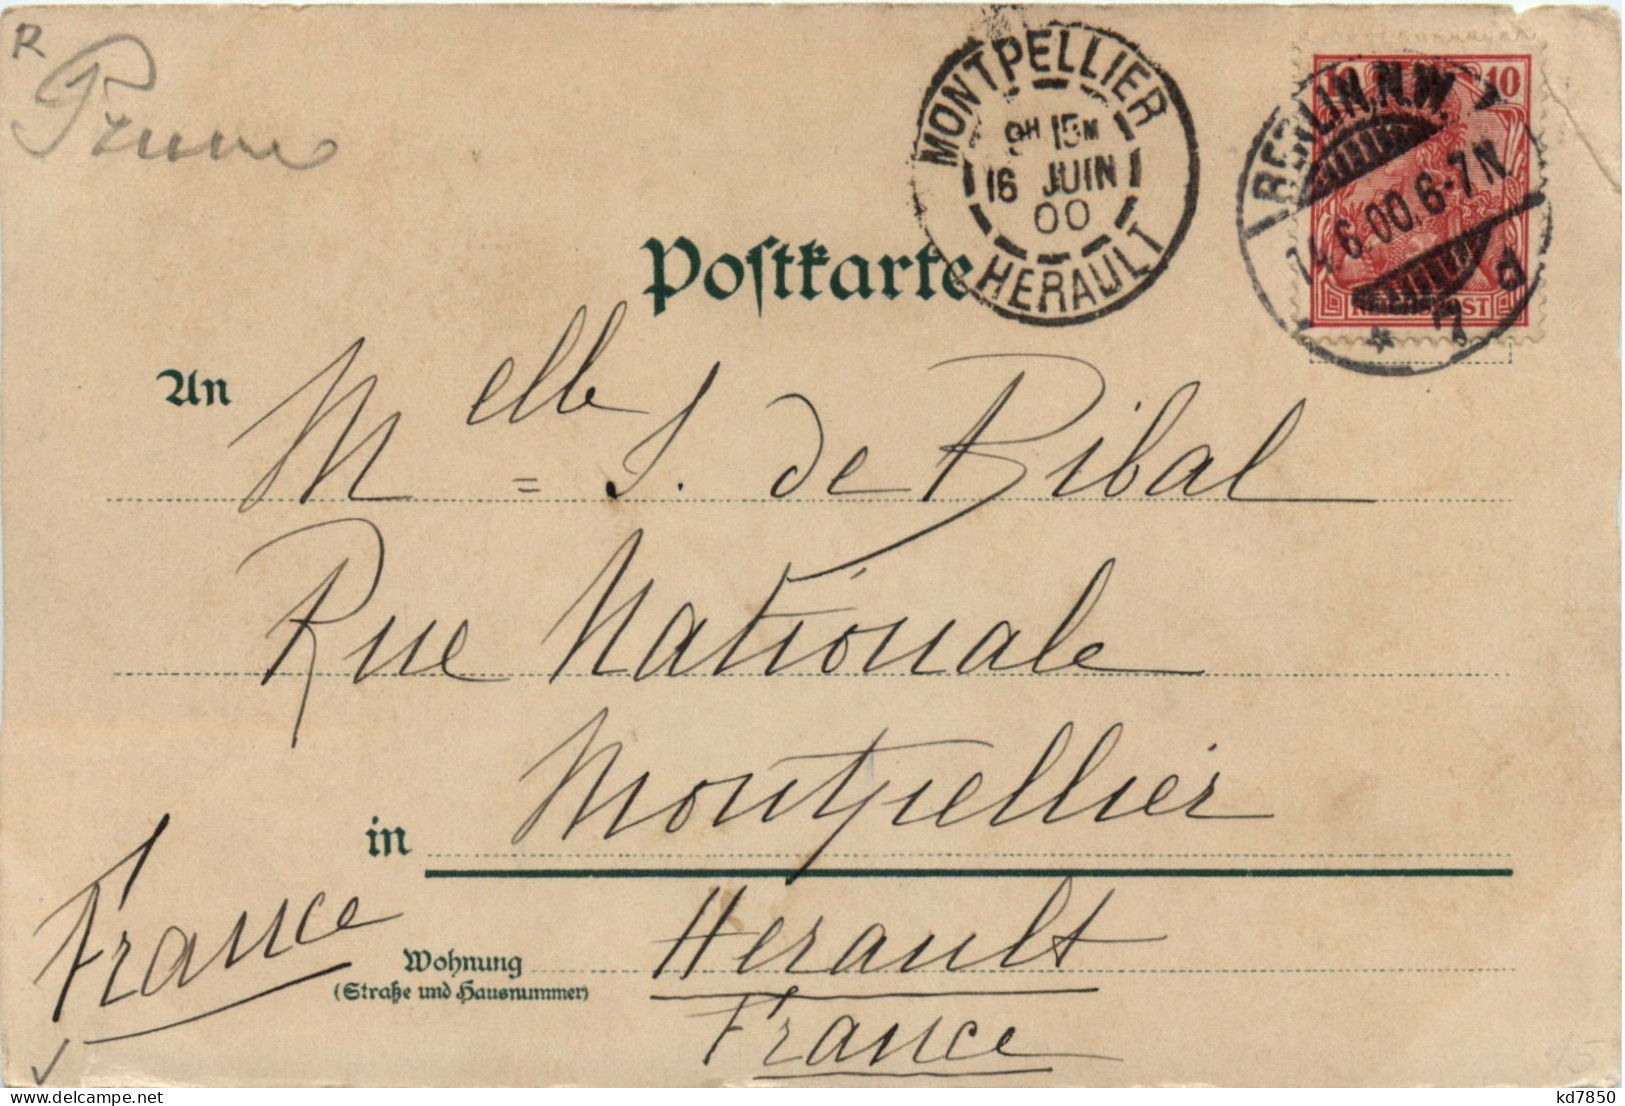 R
MONTPELLIER
9H 15M
16 JUIN
00
HERAULT
10 10
REICHSPOST
BERLIN, N.W.
14.6.00.6-7N
* 7 d
Postkarte
An
Melle = S. de Bibal
Rue Nationale
in
Montpellier
France
Wohnung
(Straße und Hausnummer)
Herault
France
kd7850